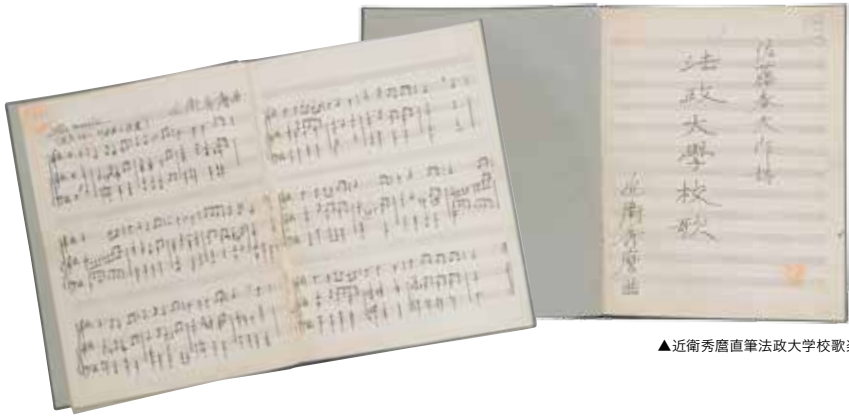 近衛秀麿曲
佐藤春夫作詩
法政大學校歌
近衛秀麿曲
▲近衛秀麿直筆法政大学校歌